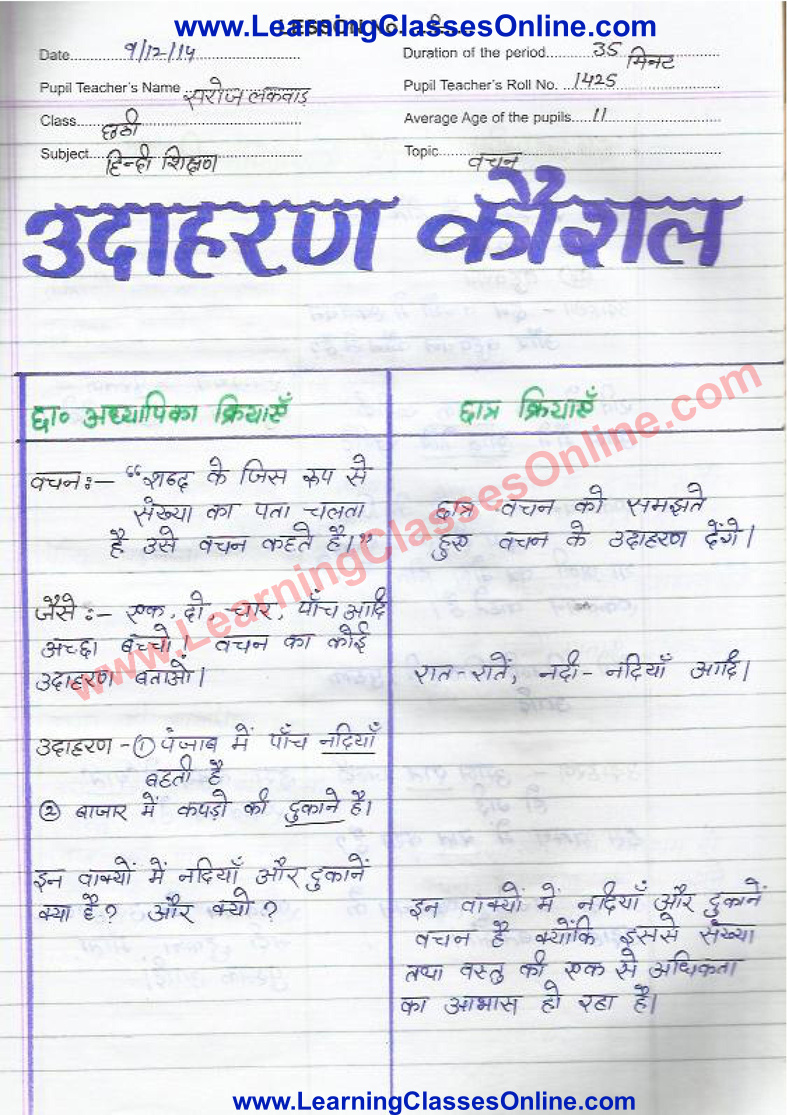 www.LearningClassesOnline.com
LESSON No.
Date 9/12/14
Duration of the period 35 मिनट
Pupil Teacher's Name सरोज लकवाड़
Pupil Teacher's Roll No. 1425
Class छठी
Average Age of the pupils 11
Subject हिन्दी शिक्षण
Topic वचन
उदाहरण कौशल
छा० अध्यापिका क्रियाएँ
वचनः– “शब्द के जिस रूप से
संख्या का पता चलता
है उसे वचन कहते है।”
जैसेः– एक, दो, चार, पाँच आदि
अच्छा बच्चो। वचन का कोई
उदाहरण बताओं।
उदाहरण –① पंजाब में पाँच नदियाँ
बहती है
② बाजार में कपड़ो की दुकाने है।
इन वाक्यों में नदियाँ और दुकानें
क्या है? और क्यो?
छात्र क्रियाएँ
छात्र वचन को समझते
हुए वचन के उदाहरण देंगे।
रात–रातें, नदी–नदियाँ आदि।
इन वाक्यों में नदियाँ और दुकानें
वचन है क्योंकि इससे संख्या
तथा वस्तु की एक से अधिकता
का आभास हो रहा है।
www.LearningClassesOnline.com
www.LearningClassesOnline.com